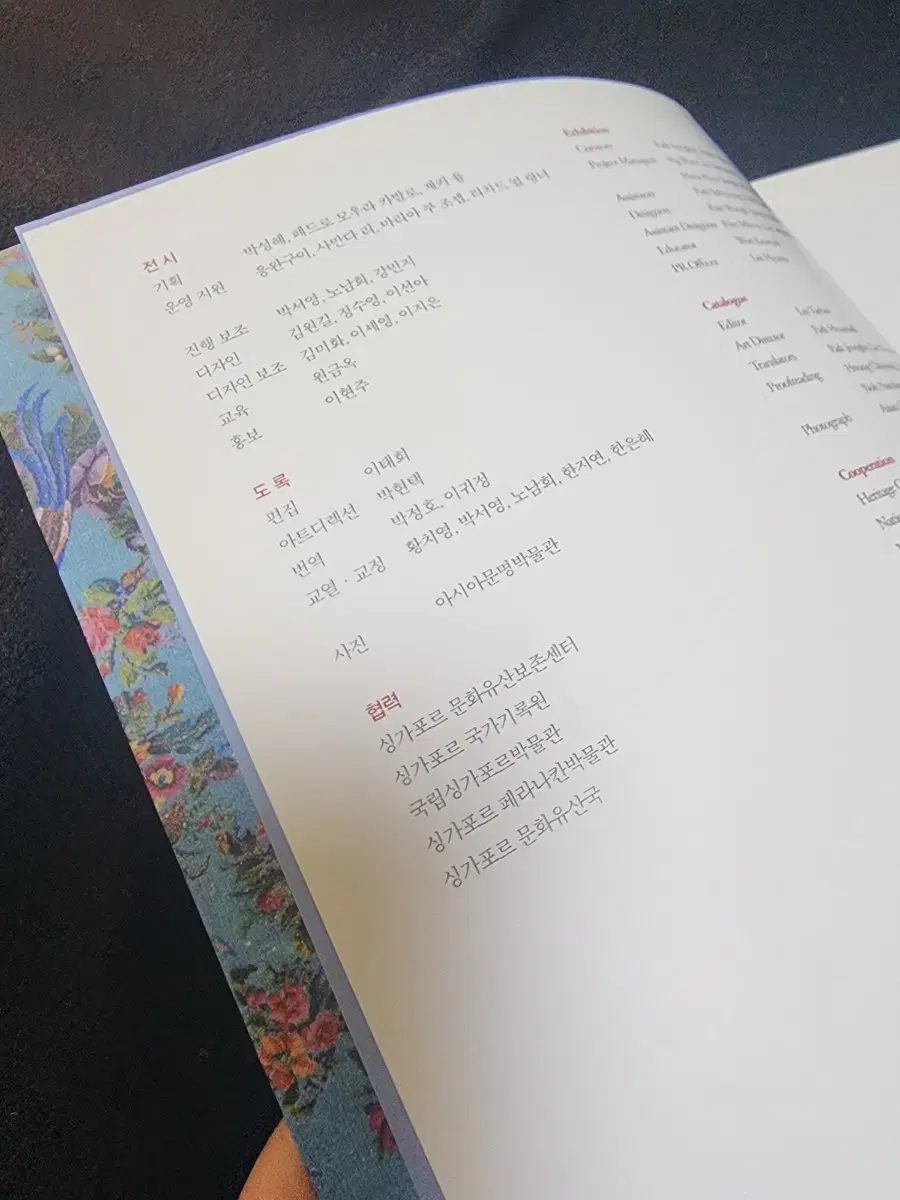 전시
기획 박성혜, 페드로 모우라 카발료, 재키 용
운영 지원 응완구이, 사만다 리, 마리아 쿠 조셉, 리카드 얼 링너
진행 보조 박서영, 노남희, 강민지
디자인 김원길, 정수영, 이선아
디자인 보조 김미화, 이세영, 이지은
교육 원금옥
홍보 이현주
도록
편집 이태희
아트디렉션 박현택
번역 박정호, 이귀정
교열 · 교정 황치영, 박서영, 노남희, 한지연, 한은혜
사진 아시아문명박물관
협력
싱가포르 문화유산보존센터
싱가포르 국가기록원
국립싱가포르박물관
싱가포르 페라나칸박물관
싱가포르 문화유산국
Exhibition
Curators
Project Managers
Assistants
Designers
Assistant Designers
Educator
PR Officer
Catalogue
Editor
Art Director
Translators
Proofreading
Photograph
Cooperation
Heritage